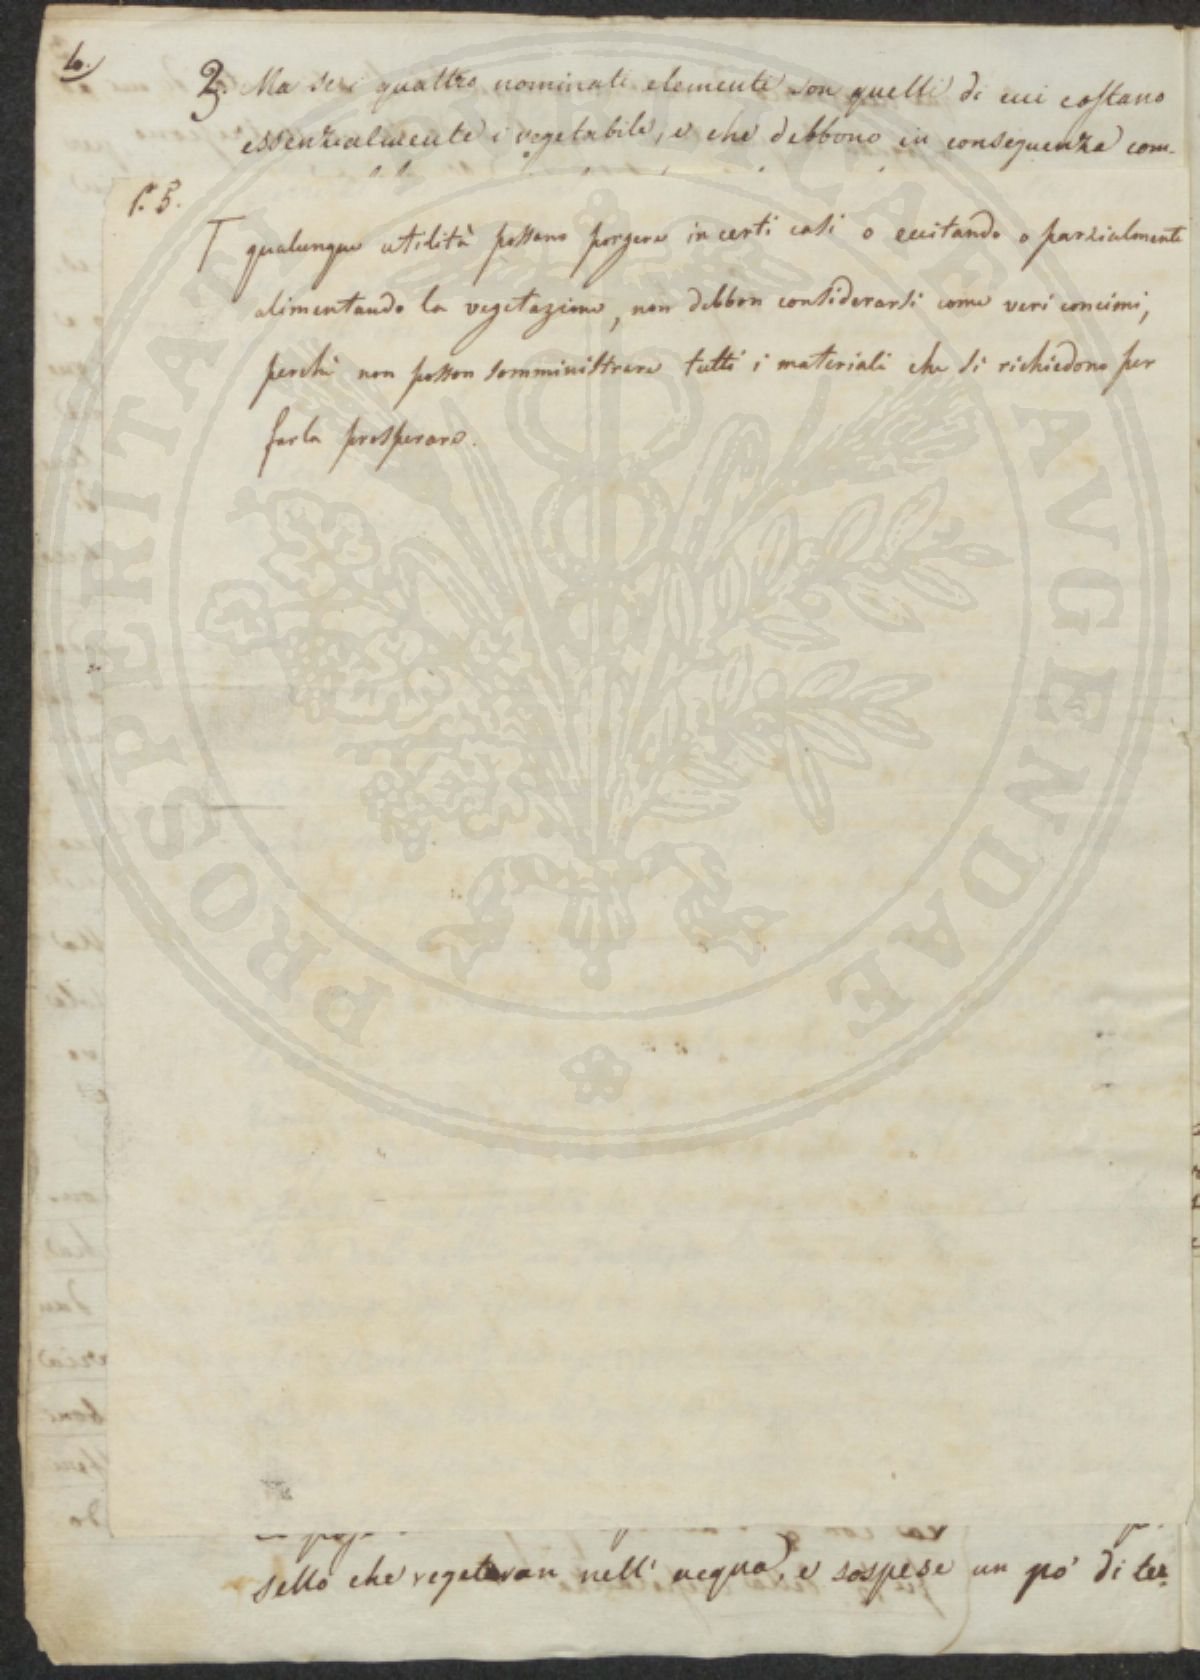 4.
3. Ma se i quattro nominati elementi son quelli di cui costano
essenzialmente i vegetabili, e che debbono in conseguenza com-
P. 5.
T qualunque utilità possano porgere in certi casi o eccitando o parzialmente
alimentando la vegetazione, non debbon considerarsi come veri concimi,
perchè non posson somministrare tutti i materiali che si richiedono per
farla prosperare.
sello che vegetavan nell' acqua, e sospese un po' di ter-
PROSPERITATI PUBLICAE AVGENDAE